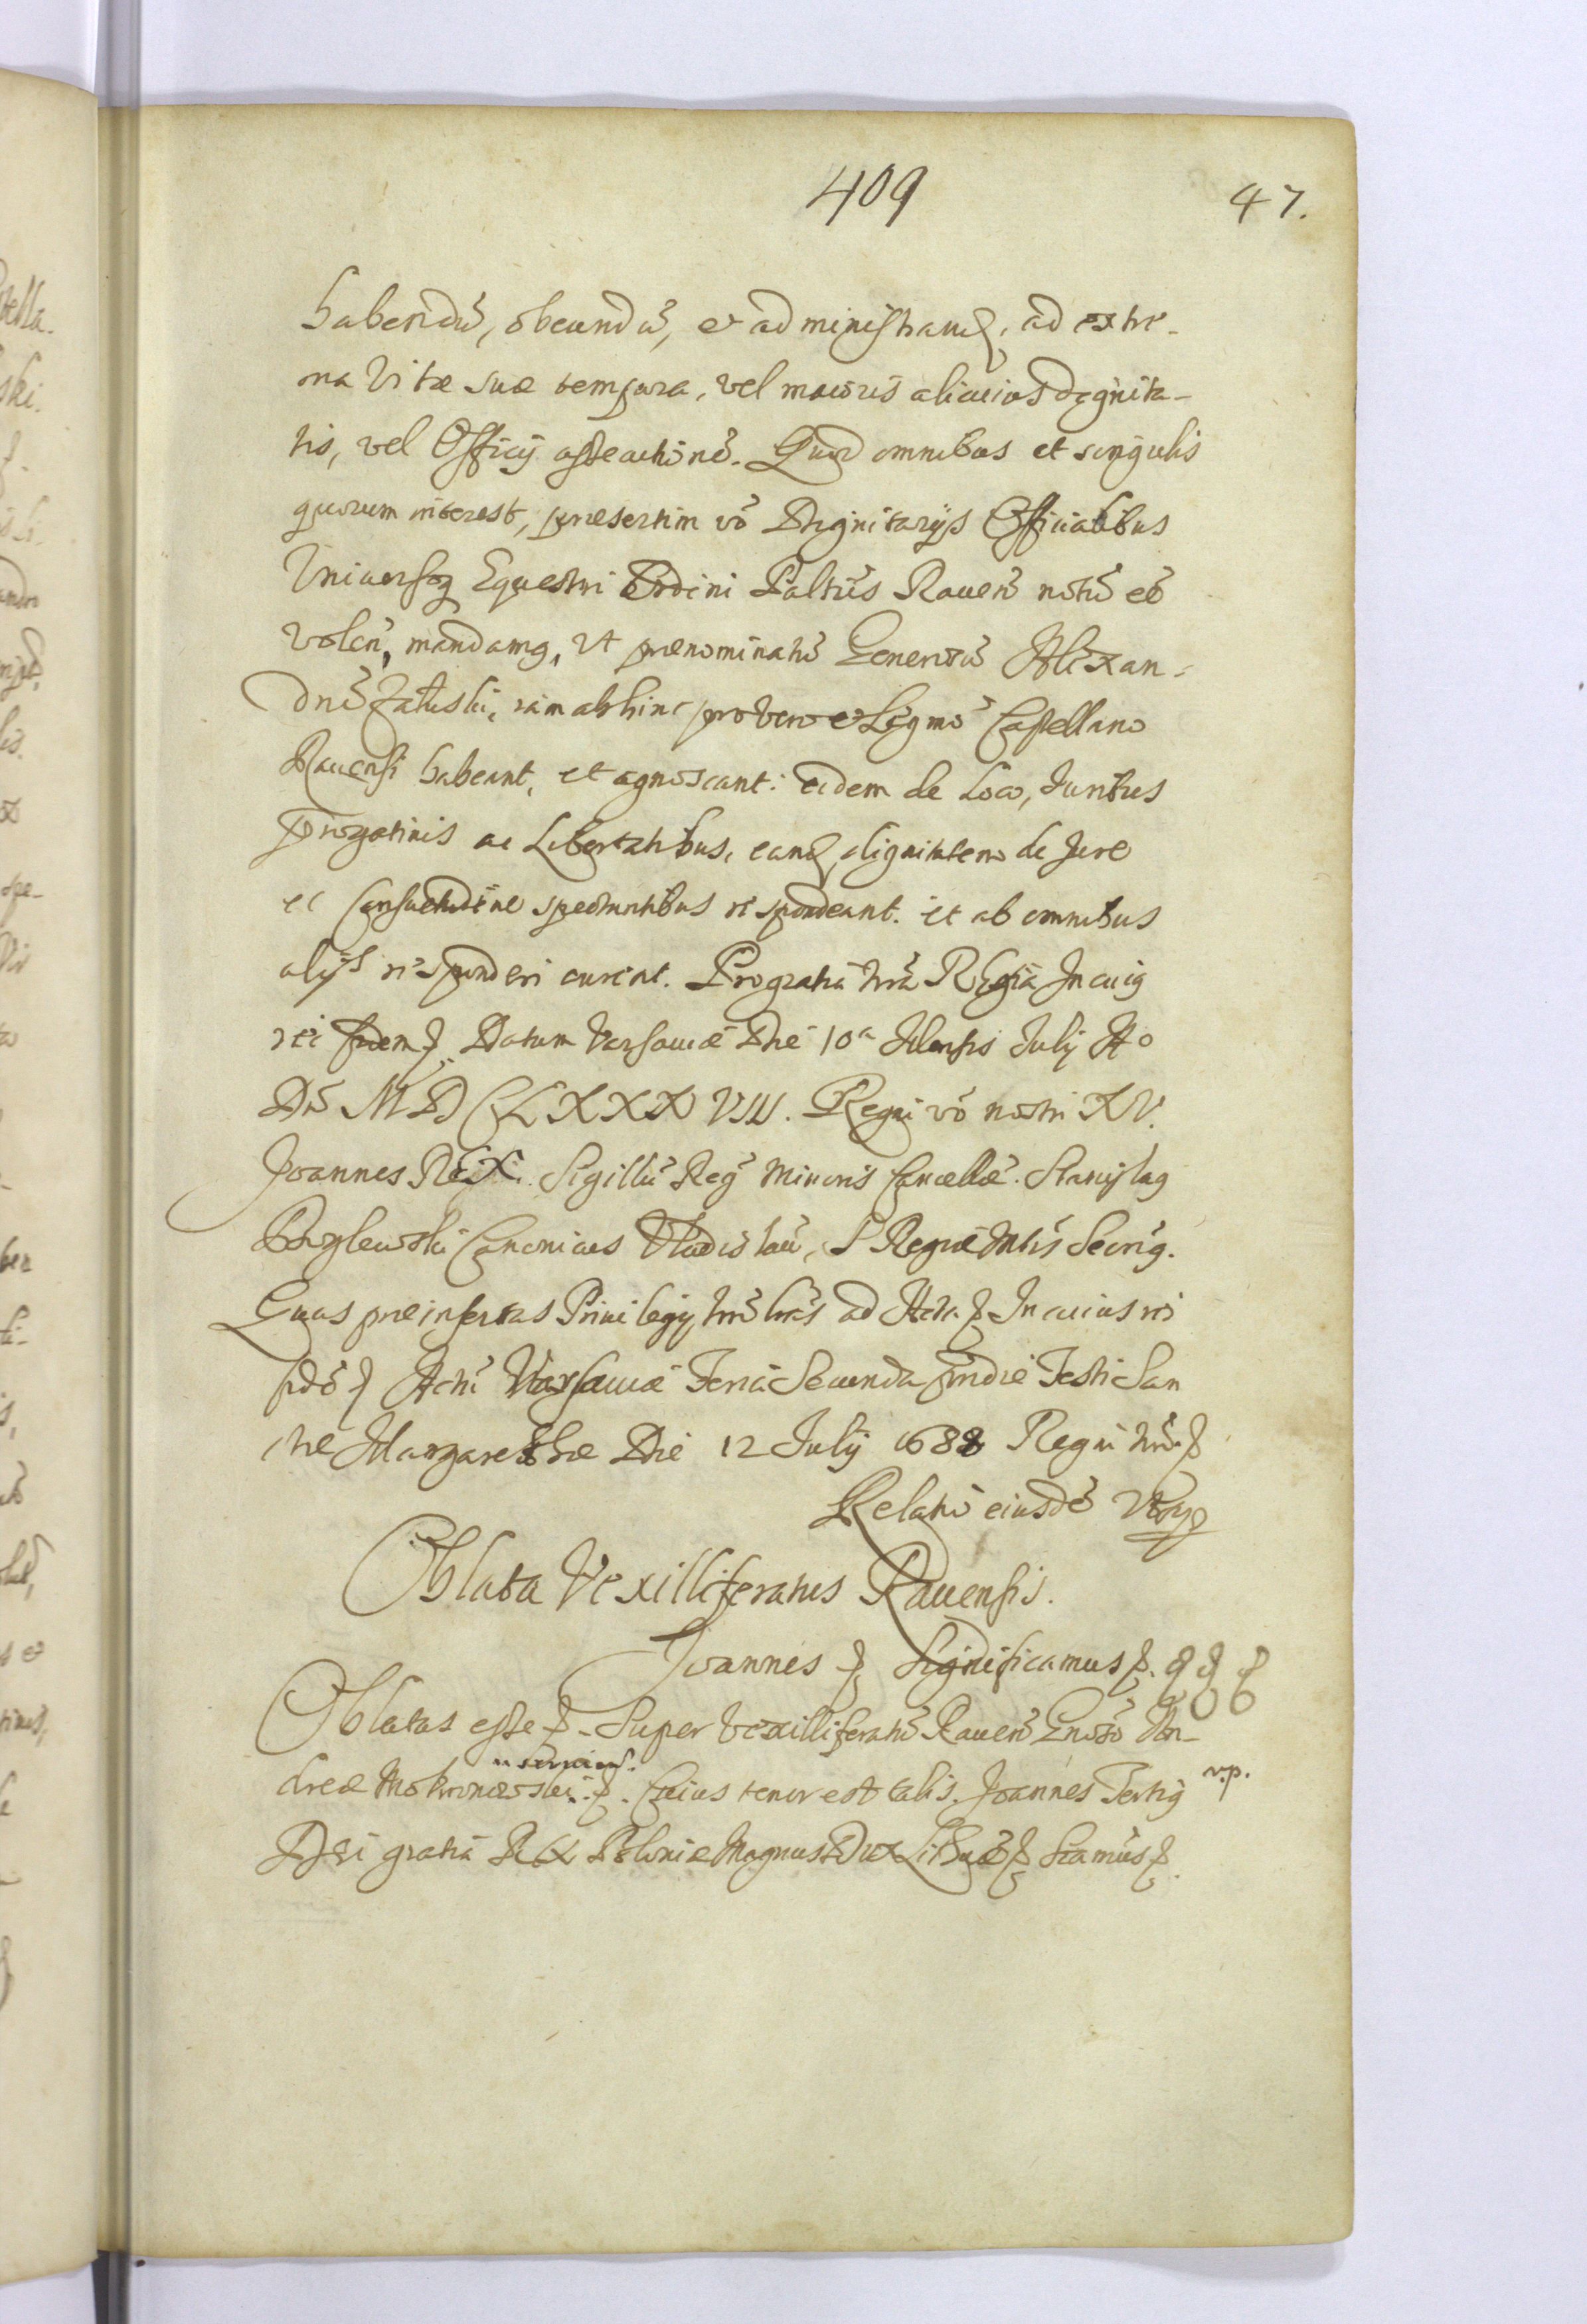 409
47.
habendũ, obeundũ, et administrand, ad extre-
ma Vitæ suæ tempora, vel maioris alicuius dignita-
tis, vel Officij assecutionẽ. Quod omnibus et singulis
quorum interest, præsertim võ Dignitarijs Officialibus
Universoq Equestri Ordini Paltũs Rauen notũ eẽ
volen, mandamq, Ut prænominatũ Generosũ Alexan-
drũ Załuski, iam abhinc pro vero et Legmõ Castellano
Rauensi habeant, et agnoscant: eidem de Loco, Iuribus
Prærogatiuis ac Libertatibus, eand dignitatem de Jure
et Consuetudine spectantibus respondeant. et ab omnibus
alijs responderi curent. Pro gratia nrã Regia In cuiq
rei fidem Datum Varsauiæ Die 10a Mensis Julij Ao
Dñi MDCLXXXVIII. Regni võ nostri XV.
Joannes REX. Sigillũ Reg Minoris Cancellæ. Stanislaq
Canonicus Vladislau, S Regiæ Mtis Secriq.
Quas præinsertas Privilegij nrĩ lrãs ad Acta In cuius rei
fidẽ Actũ Varsauiæ Feria Secunda pridie Festi San
ctæ Margarethæ Die 12 Julij 1688 Regni nrĩ
Relatio eiusdẽ
Oblata Vexilliferatus Rauensis.
Joannes Significamus
Oblatas esse Super Vexilliferatũ Rauen Gnoso An-
dreæ Mokronowski Cuius tenor est talis. Joannes Tertiq
v.p.
Dei gratia Rex Poloniæ Magnus Dux Lithuæ Scamus